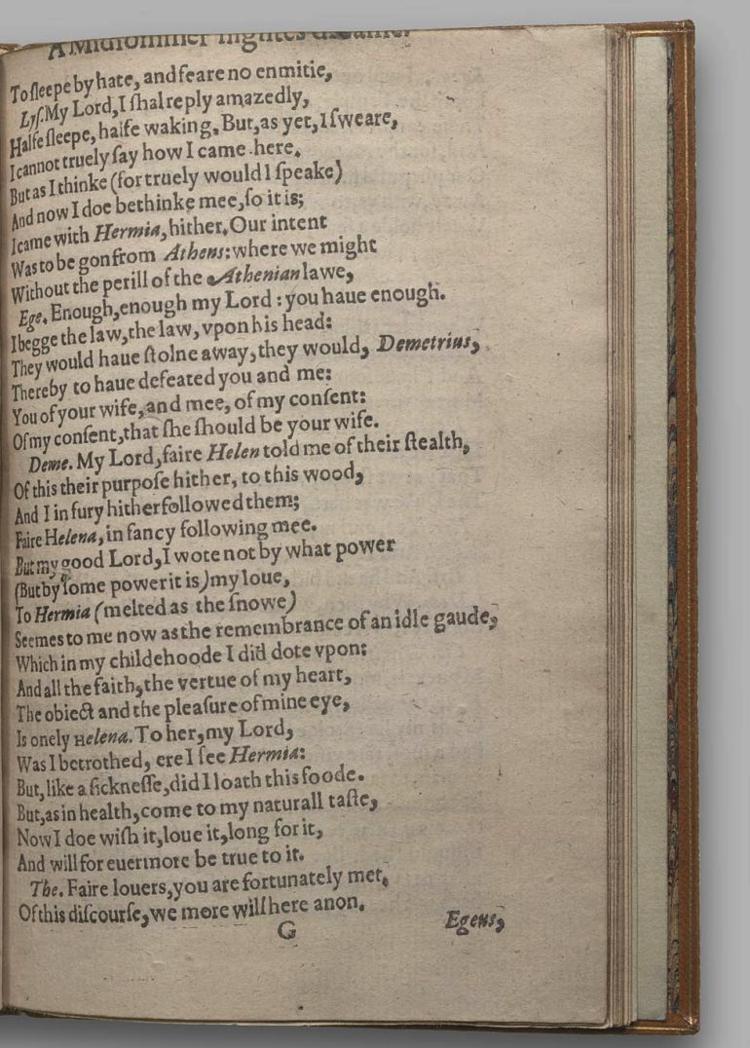 A Midsommer nightes dreame.
To ſleepe by hate, and feare no enmitie,
Lyſ. My Lord, I ſhal reply amazedly,
Halfe ſleepe, halfe waking. But, as yet, I ſweare,
I cannot truely ſay how I came here.
But as I thinke (for truely would I ſpeake)
And now I doe bethinke mee, ſo it is;
I came with Hermia, hither. Our intent
Was to be gon from Athens: where we might
Without the perill of the Athenian lawe,
Ege. Enough, enough my Lord: you haue enough.
I begge the law, the law, vpon his head:
They would haue ſtolne away, they would, Demetrius,
Thereby to haue defeated you and me:
You of your wife, and mee, of my conſent:
Of my conſent, that ſhe ſhould be your wife.
Deme. My Lord, faire Helen told me of their ſtealth,
Of this their purpoſe hither, to this wood,
And I in fury hither followed them;
Faire Helena, in fancy following mee.
But my good Lord, I wote not by what power
(But by ſome power it is) my loue,
To Hermia (melted as the ſnowe)
Seemes to me now as the remembrance of an idle gaude,
Which in my childehoode I did dote vpon:
And all the faith, the vertue of my heart,
The obiect and the pleaſure of mine eye,
Is onely Helena. To her, my Lord,
Was I betrothed, ere I ſee Hermia:
But, like a ſickneſſe, did I loath this foode.
But, as in health, come to my naturall taſte,
Now I doe wiſh it, loue it, long for it,
And will for euermore be true to it.
The. Faire louers, you are fortunately met.
Of this diſcourſe, we more will here anon.
G
Egeus,